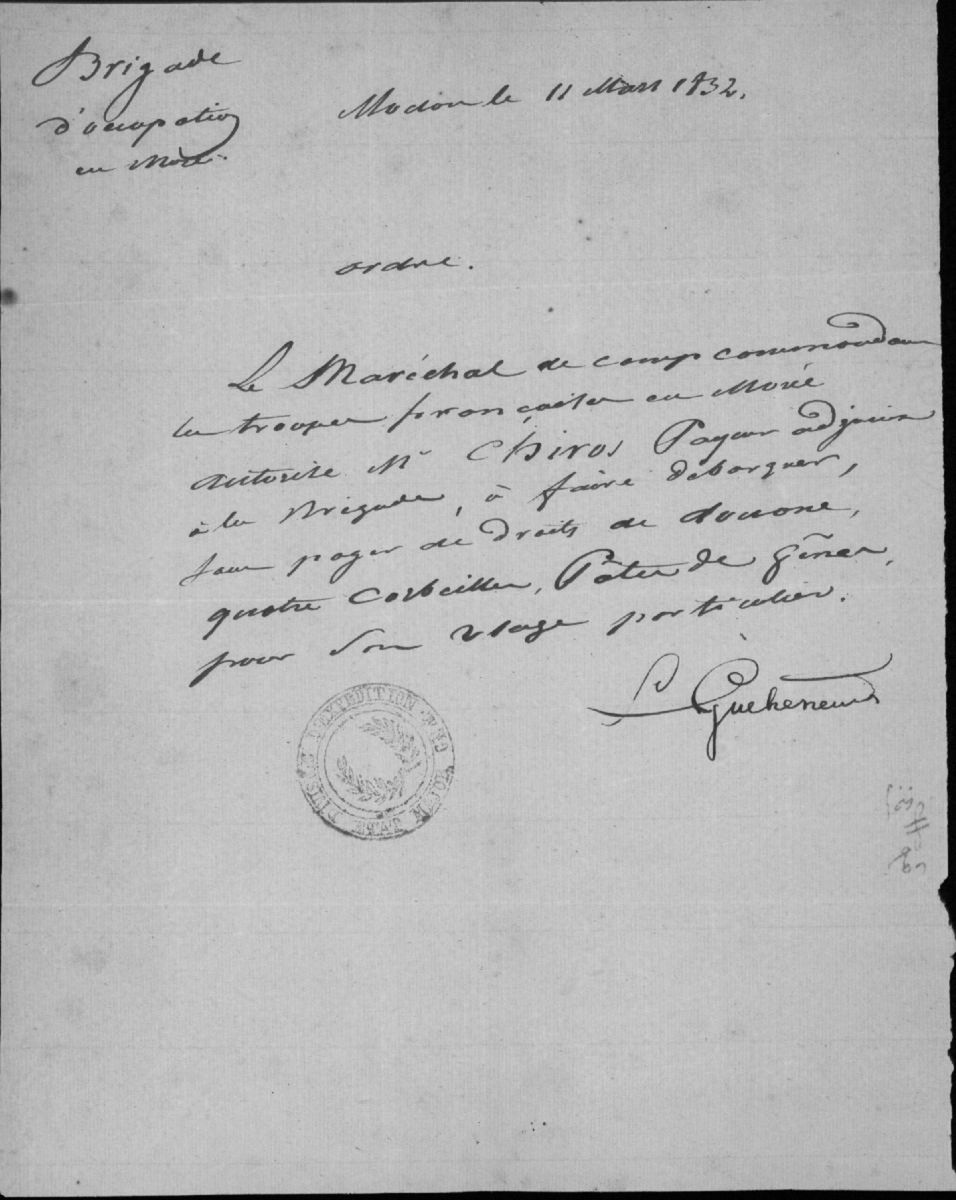 Brigade
d'occupation
en Morée.
Modon le 11 Mars 1832.
ordre.
Le Maréchal de camp commandant
les troupes françaises en Morée
autorise Mr Chiros Payeur adjoint
à la Brigade, à faire débarquer,
sans payer de droits de douane,
quatre Corbeilles, Pâtes de Gênes,
pour son usage particulier.
Gueheneuc
DIVISION D'EXPEDITION
ETAT MAJOR